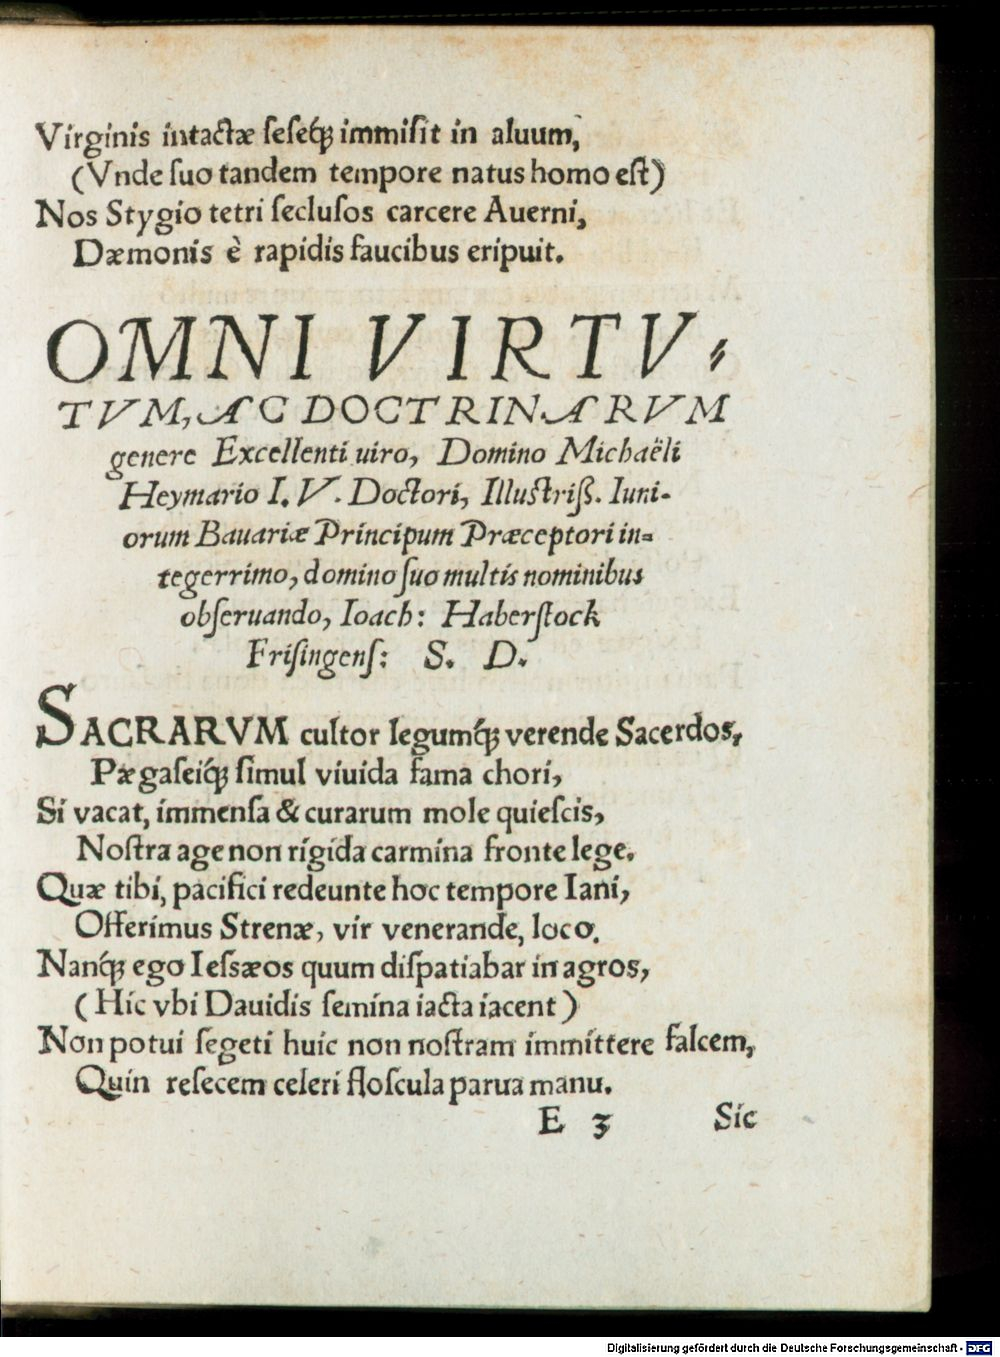 Virginis intactæ ſeſeq́ꝫ immiſit in aluum,
(Vnde ſuo tandem tempore natus homo eſt)
Nos Stygio tetri ſecluſos carcere Auerni,
Dæmonis è rapidis faucibus eripuit.
OMNI VIRTV⸗
TVM, AC DOCTRINARVM
genere Excellenti uiro, Domino Michaëli
Heymario I. V. Doctori, Illuſtriß. Iuni-
orum Bauariæ Principum Præceptori in⸗
tegerrimo, domino ſuo multis nominibus
obſeruando, Ioach: Haberſtock
Friſingenſ: S. D.
SACRARVM cultor legumq́ꝫ verende Sacerdos,
Pægaſeiq́ꝫ ſimul viuida fama chori,
Si vacat, immenſa & curarum mole quieſcis,
Noſtra age non rigida carmina fronte lege.
Quæ tibi, pacifici redeunte hoc tempore Iani,
Offerimus Strenæ, vir venerande, loco.
Nanq́ꝫ ego Ieſſæos quum diſpatiabar in agros,
(Hic vbi Dauidis ſemina iacta iacent)
Non potui ſegeti huic non noſtram immittere falcem,
Quin reſecem celeri floſcula parua manu.
E 3 Sic
Digitalisierung gefördert durch die Deutsche Forschungsgemeinschaft - DFG